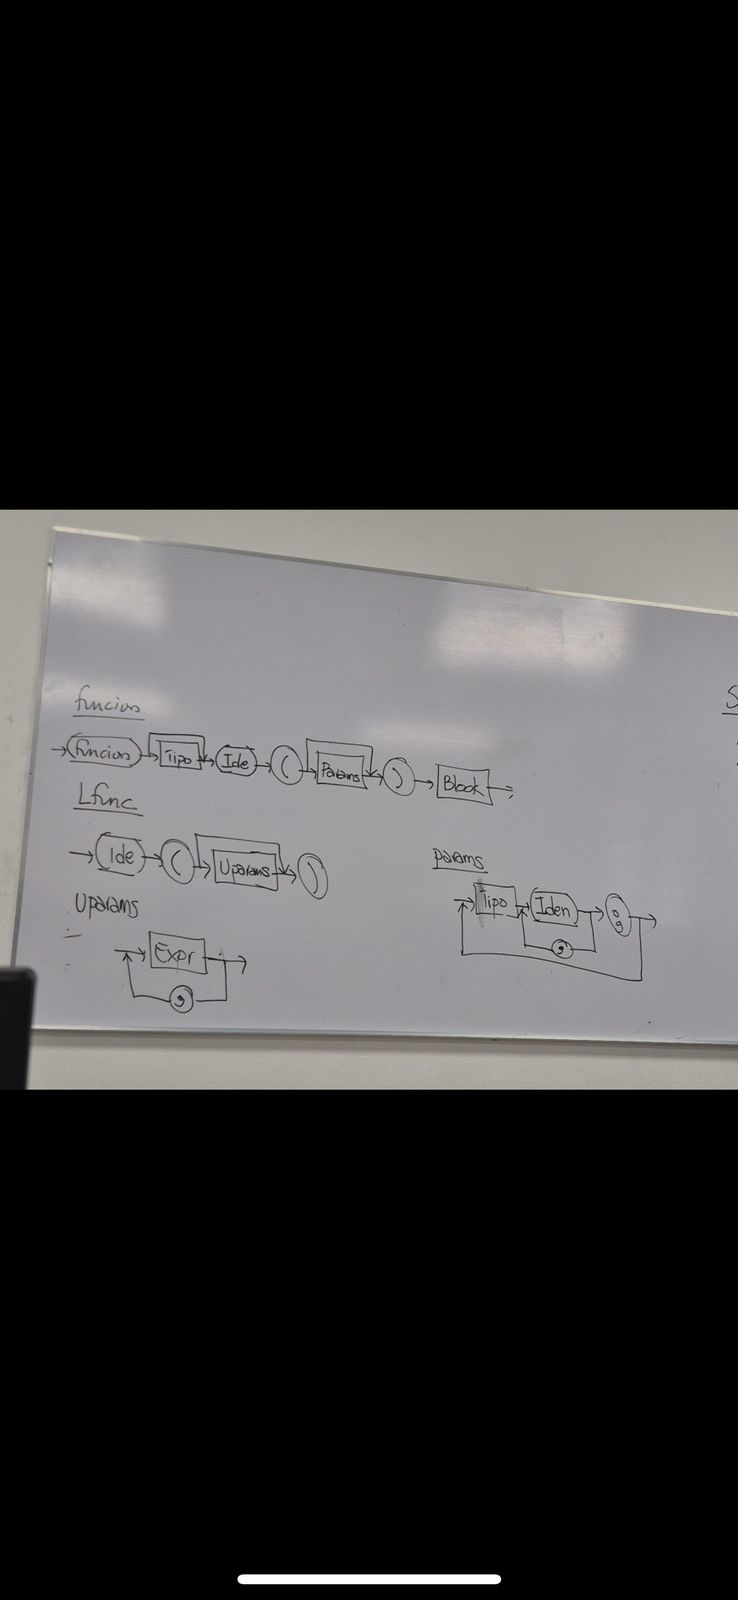 funcion
funcion Tipo Ide ( Params ) Block
Lfunc
Ide ( Uparams )
Uparams
Expr
,
params
Tipo Iden ;
,
S